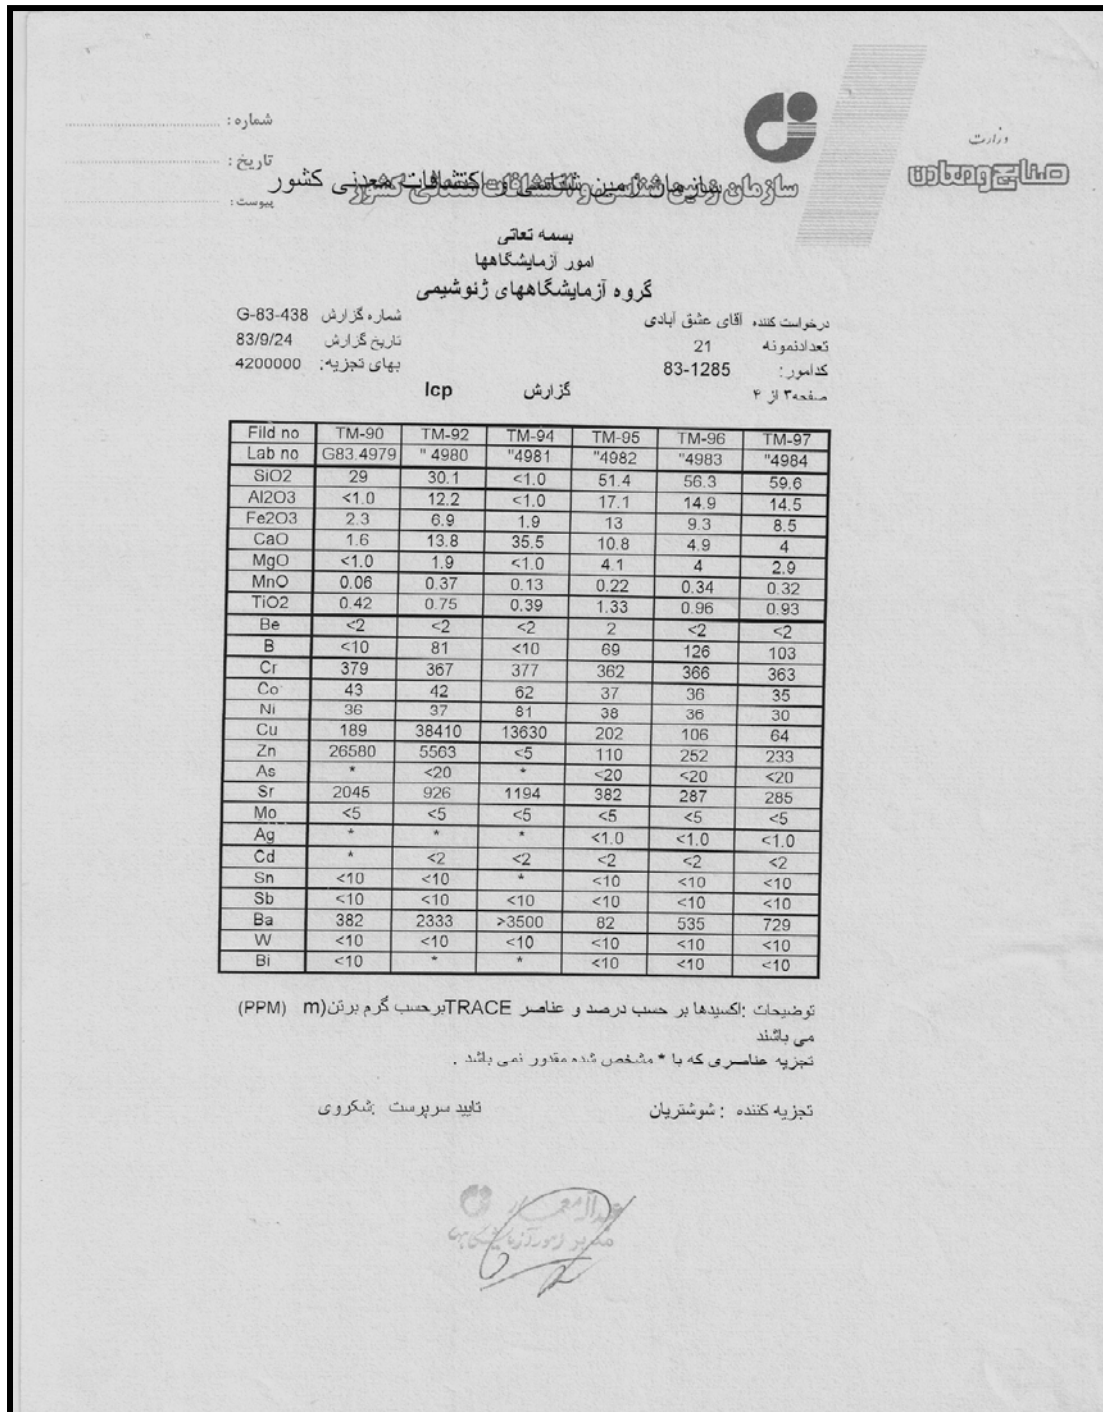 وزارت
صنایع و معادن
شماره :
تاریخ :
پیوست :
سازمان زمین شناسی و اکتشافات معدنی کشور
بسمه تعالی
امور آزمایشگاهها
گروه آزمایشگاههای ژئوشیمی
درخواست کننده آقای عشق آبادی شماره گزارش G-83-438
تعدادنمونه 21 تاریخ گزارش 83/9/24
کدامور: 83-1285 بهای تجزیه: 4200000
صفحه۳ از ۴ گزارش Icp
Fild no TM-90 TM-92 TM-94 TM-95 TM-96 TM-97
Lab no G83.4979 " 4980 "4981 "4982 "4983 "4984
SiO2 29 30.1 <1.0 51.4 56.3 59.6
Al2O3 <1.0 12.2 <1.0 17.1 14.9 14.5
Fe2O3 2.3 6.9 1.9 13 9.3 8.5
CaO 1.6 13.8 35.5 10.8 4.9 4
MgO <1.0 1.9 <1.0 4.1 4 2.9
MnO 0.06 0.37 0.13 0.22 0.34 0.32
TiO2 0.42 0.75 0.39 1.33 0.96 0.93
Be <2 <2 <2 2 <2 <2
B <10 81 <10 69 126 103
Cr 379 367 377 362 366 363
Co 43 42 62 37 36 35
Ni 36 37 81 38 36 30
Cu 189 38410 13630 202 106 64
Zn 26580 5563 <5 110 252 233
As * <20 * <20 <20 <20
Sr 2045 926 1194 382 287 285
Mo <5 <5 <5 <5 <5 <5
Ag * * * <1.0 <1.0 <1.0
Cd * <2 <2 <2 <2 <2
Sn <10 <10 * <10 <10 <10
Sb <10 <10 <10 <10 <10 <10
Ba 382 2333 >3500 82 535 729
W <10 <10 <10 <10 <10 <10
Bi <10 * * <10 <10 <10
توضیحات :اکسیدها بر حسب درصد و عناصر TRACEبرحسب گرم برتن(m (PPM)
می باشند
تجزیه عناصری که با * مشخص شده مقدور نمی باشد .
تجزیه کننده : شوشتریان تایید سرپرست :شکروی